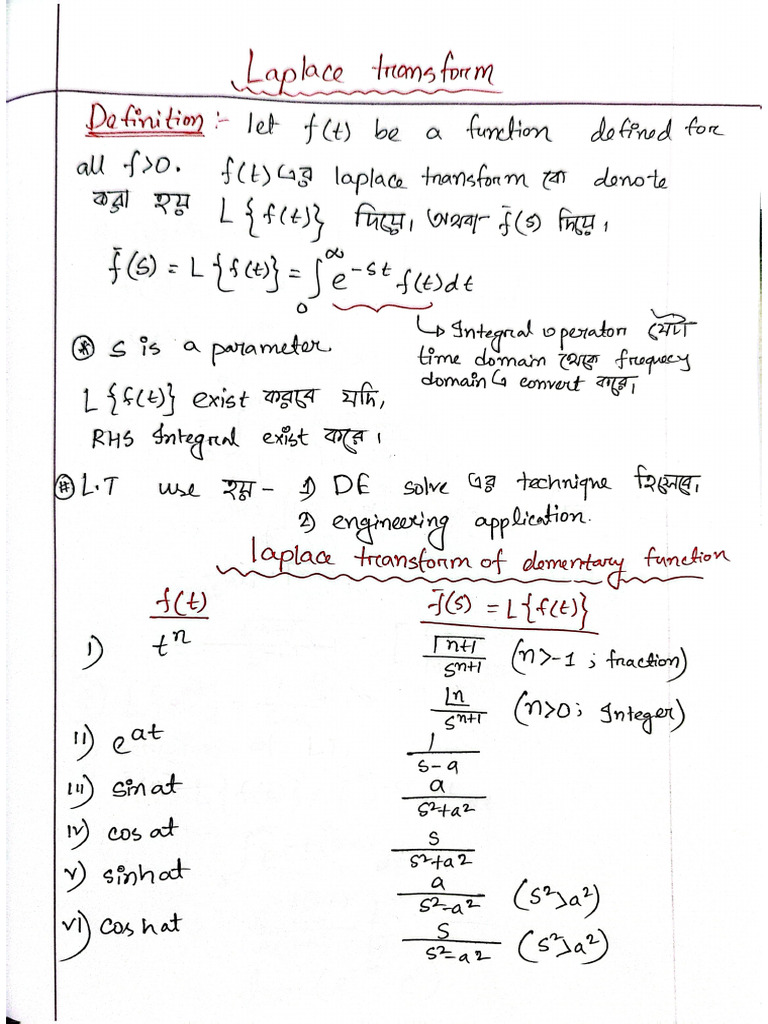 Laplace transform
Definition :- let f(t) be a function defined for
all f>0. f(t) এর laplace transform কে denote
করা হয় L{f(t)} দিয়ে। অথবা- f̄(s) দিয়ে।
f̄(s) = L{f(t)} = ∫₀^∞ e^{-st} f(t)dt
↳ Integral operator যেটা
time domain থেকে frequecy
domain এ convert করে।
⊛ s is a parameter.
L{f(t)} exist করবে যদি,
RHS Integral exist করে।
# L.T use হয়- 1) DE solve এর technique হিসেবে।
2) engineering application.
laplace transform of elementary function
f(t) f̄(s) = L{f(t)}
i) t^n Γn+1 / s^{n+1} (n>-1 ; fraction)
⌊n / s^{n+1} (n>0; Integer)
ii) e^{at} 1 / s-a
iii) sinat a / s²+a²
iv) cos at s / s²+a²
v) sinhat a / s²-a² (s²>a²)
vi) coshat s / s²-a² (s²>a²)